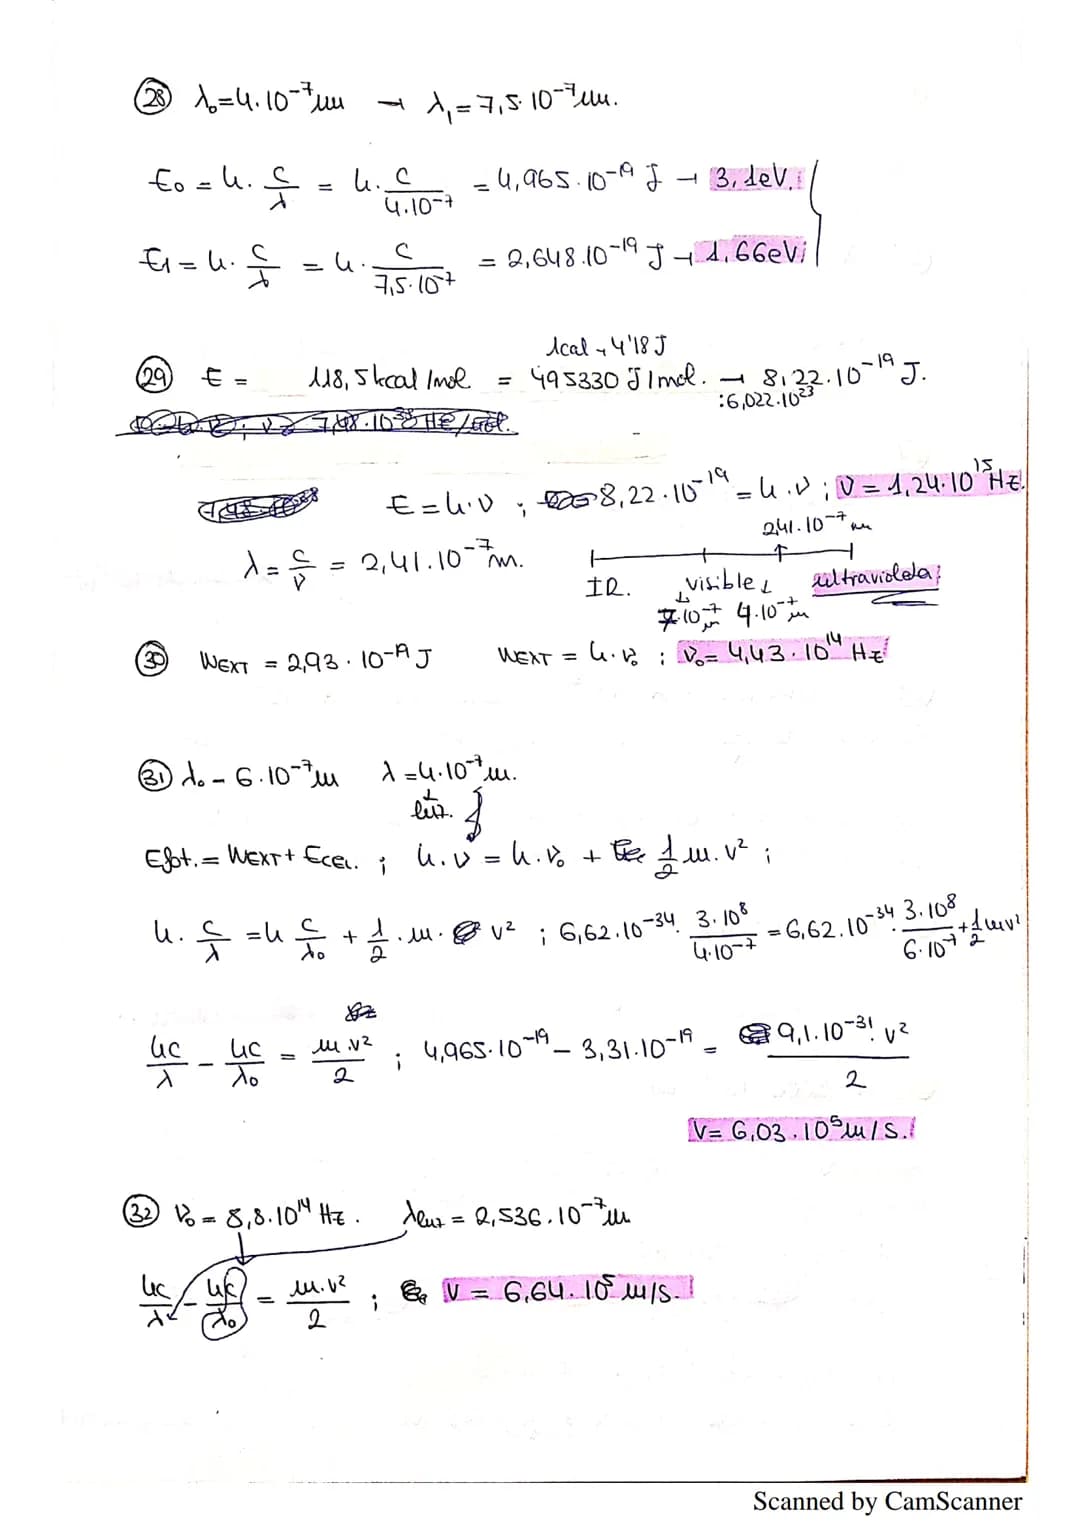 28 λ₀=4.10⁻⁷m → λ₁=7,5.10⁻⁷m.
E₀ = h. c/λ = h. c/4.10⁻⁷ = 4,965.10⁻¹⁹ J → 3,1eV.
E₁ = h. c/λ = h. c/7,5.10⁻⁷ = 2,648.10⁻¹⁹ J → 1,66eV
1cal → 4'18 J
29 E = 118,5 kcal/mol = 495330 J/mol. → 8,22.10⁻¹⁹ J.
:6,022.10²³
E = h.ν ; 8,22.10⁻¹⁹ = h.ν ; ν = 1,24.10¹⁵ Hz.
2,41.10⁻⁷ m
λ = c/ν = 2,41.10⁻⁷m.
IR. visible ultravioleta
7.10⁻⁷m 4.10⁻⁷m
30 WEXT = 2,93.10⁻¹⁹ J WEXT = h.ν₀ ; ν₀ = 4,43.10¹⁴ Hz
31 λ₀ = 6.10⁻⁷m λ = 4.10⁻⁷m.
luz.
Efot. = WEXT + Ecel. ; h.ν = h.ν₀ + 1/2 m.v² ;
h. c/λ = h c/λ₀ + 1/2 .m. v² ; 6,62.10⁻³⁴. 3.10⁸/4.10⁻⁷ = 6,62.10⁻³⁴. 3.10⁸/6.10⁻⁷ + 1/2 mv²
hc/λ - hc/λ₀ = m v²/2 ; 4,965.10⁻¹⁹ - 3,31.10⁻¹⁹ = 9,1.10⁻³¹. v²/2
V = 6,03.10⁵ m/s.
32 ν₀ = 8,8.10¹⁴ Hz. λluz = 2,536.10⁻⁷m
hc/λ - hc/λ₀ = m.v²/2 ; V = 6,64.10⁵ m/s.
Scanned by CamScanner